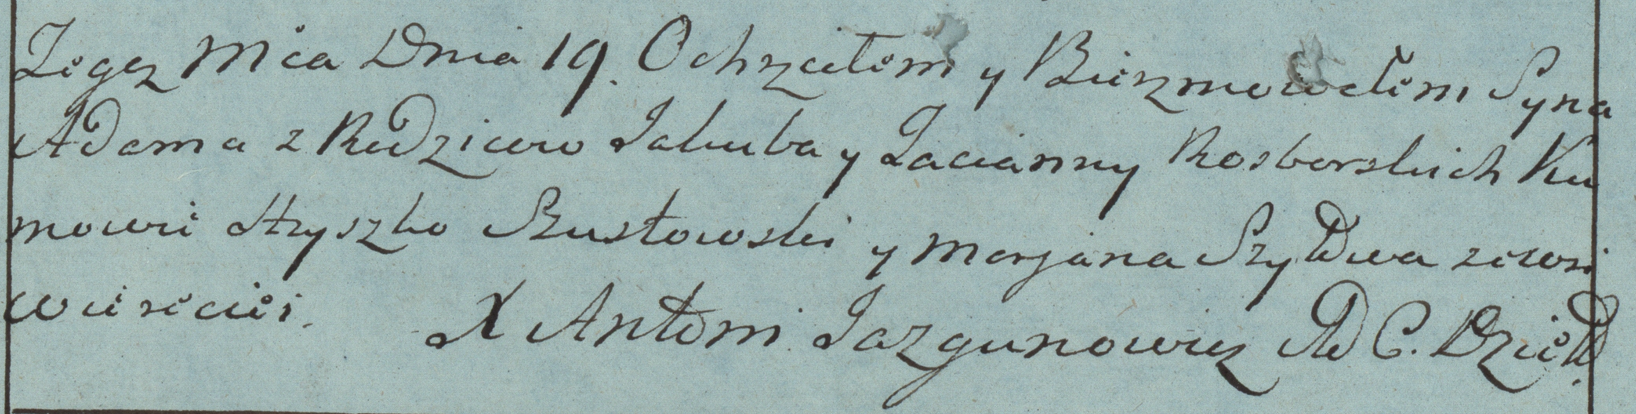 Tegoż Mca Dnia 19. Ochrzciłem y Bierzmowałem Syna
Adama z Rodziców Jakuba y Tacianny Rosborskich Ku
mowie Hryszko Szustowski y Marjana Szydłwa ze wsi
Wiereciei. X Antoni Jazgunowicz AD C. Dzied.